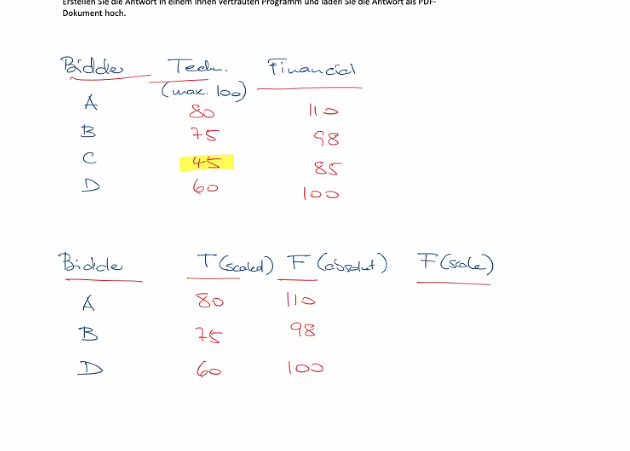 Erstellen Sie die Antwort in einem Ihnen vertrauten Programm und laden Sie die Antwort als PDF-
Dokument hoch.
Bidder Techn. Financial
(max. 100)
A 80 110
B 75 98
C 45 85
D 60 100
Bidder T (scaled) F (absolut) F (scale)
A 80 110
B 75 98
D 60 100